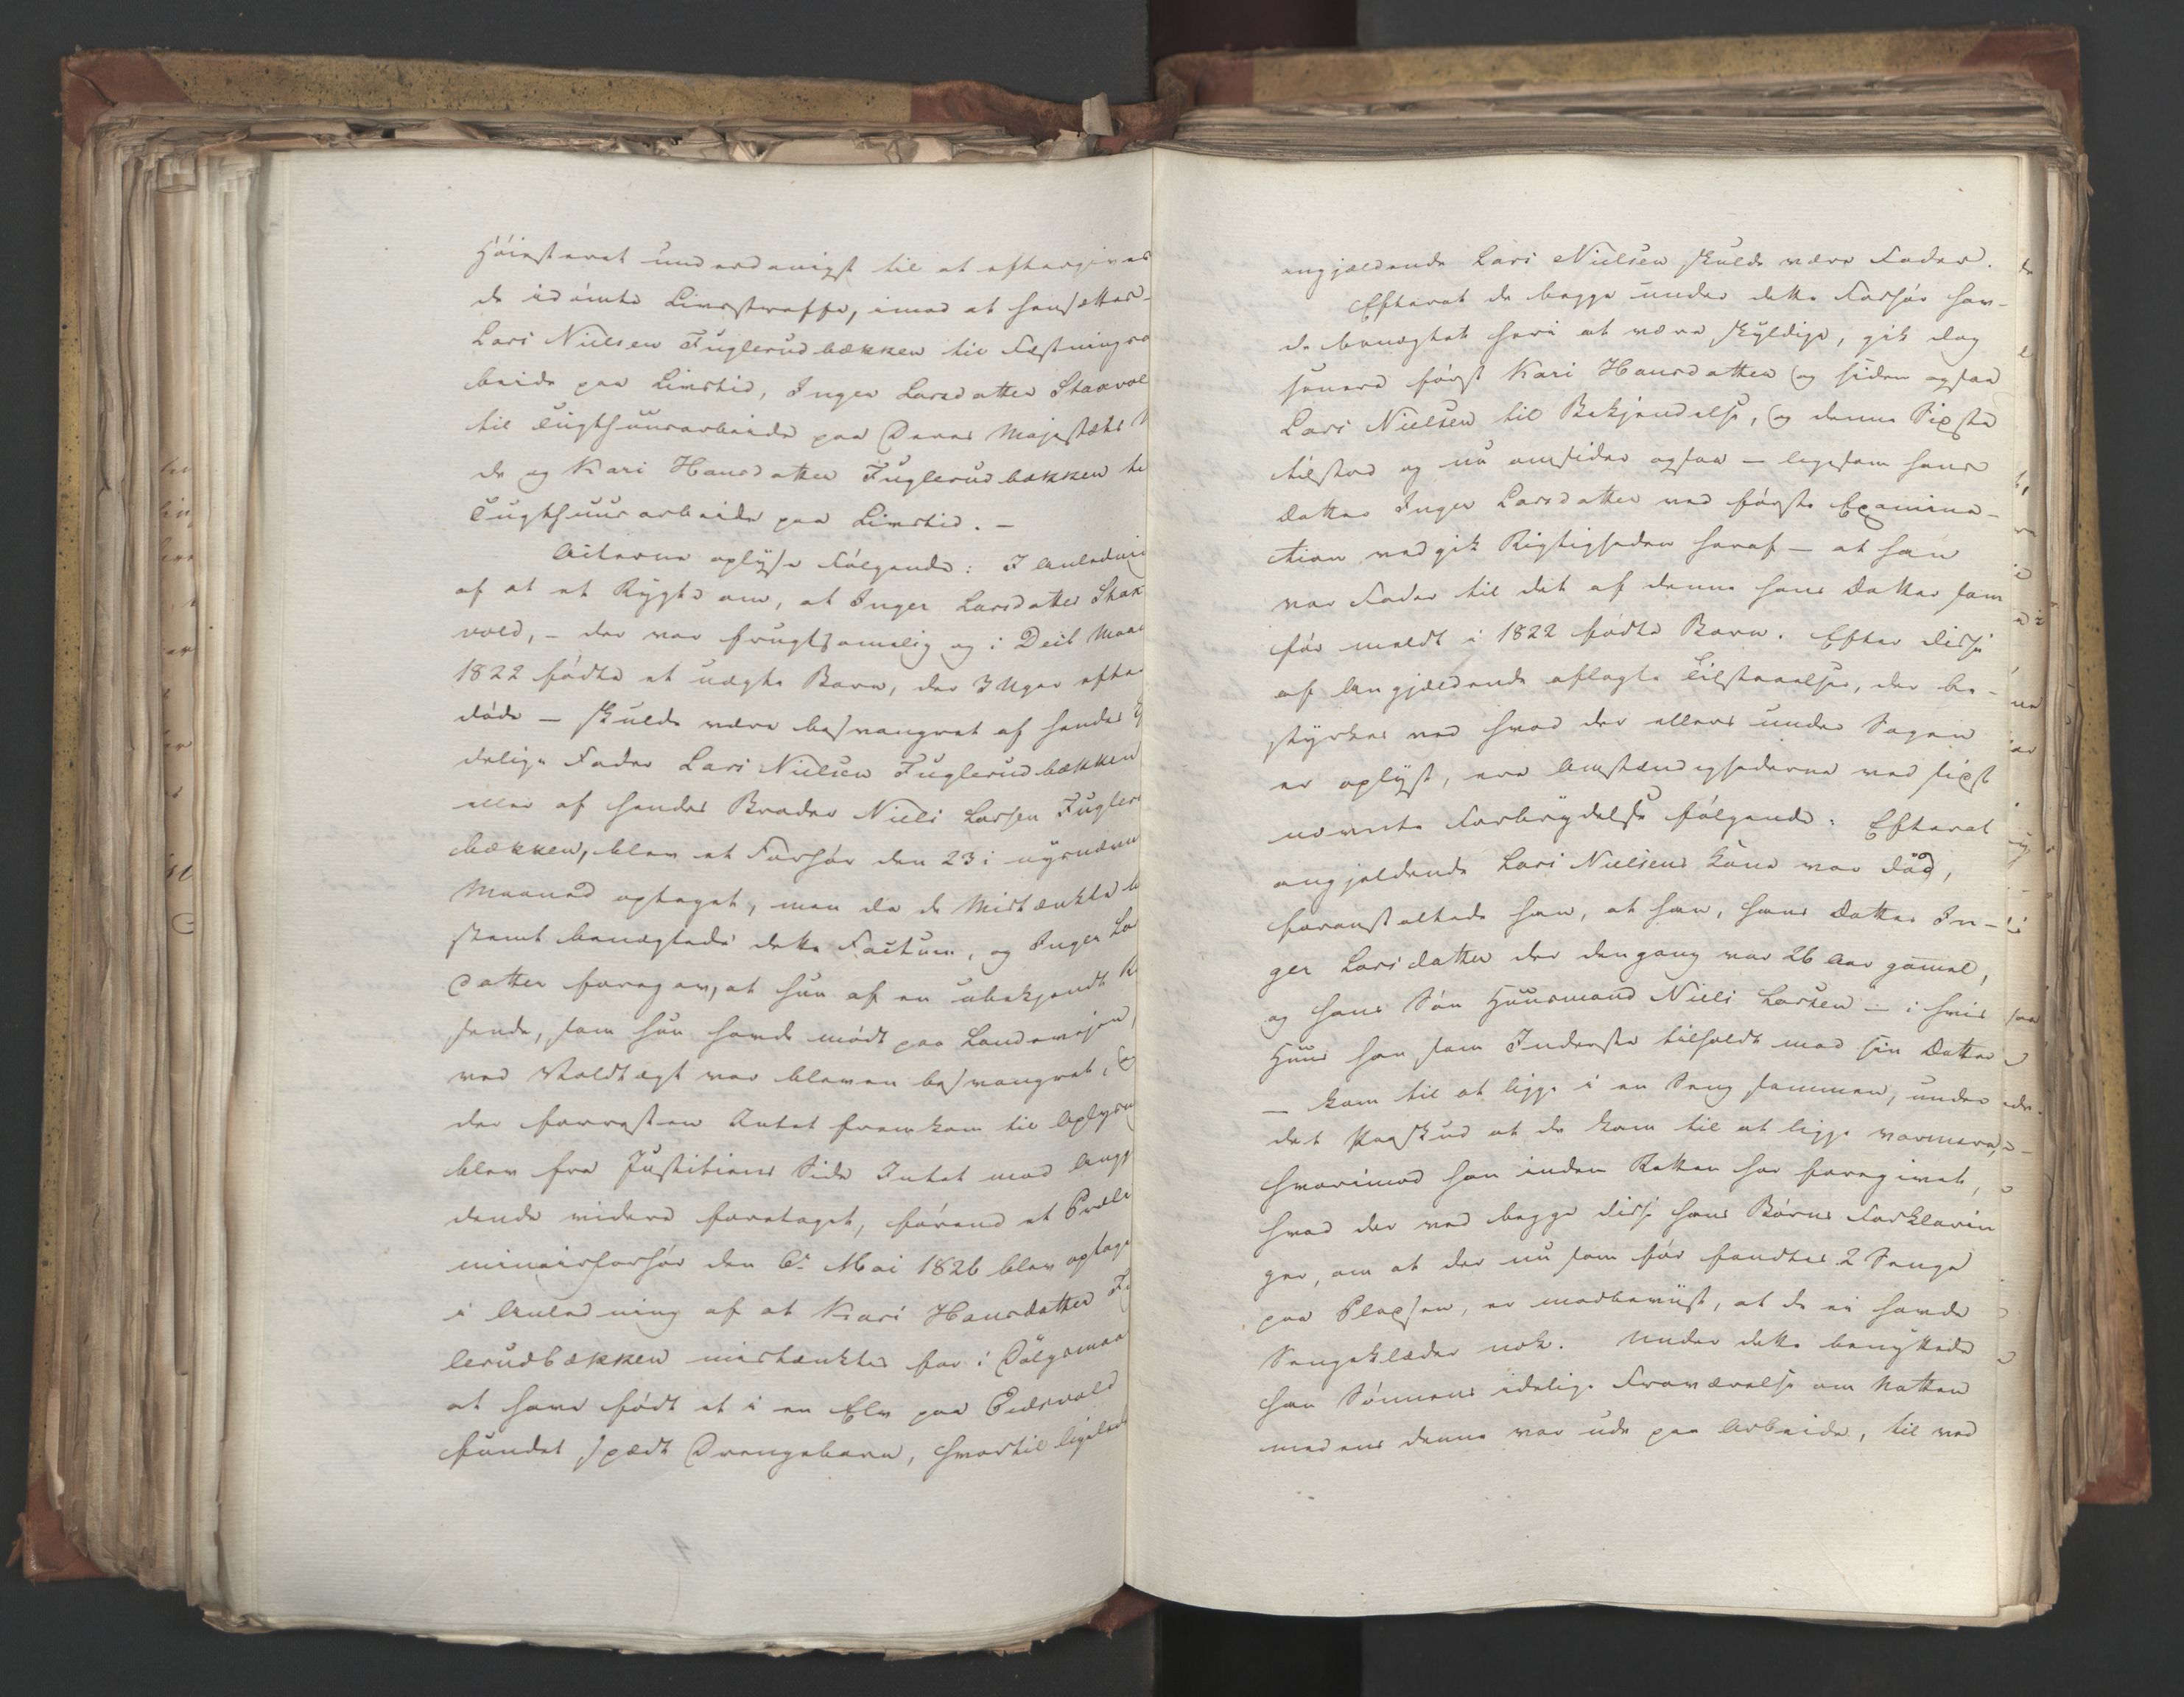 Höiesteret underdanigst til at eftergives
de idömte Livsstraffe, imod at hensættes
Lars Nielsen Fuglerudbækken til Fæstningsa
beide paa Livstid, Inger Larsdatter Staxvol
til Tugthuusarbeide paa Deres Majestæts N
de og Kari Hansdatter Fuglerudbækken ti
Tugthuusarbeide paa Livstid. –
Acterne oplyse Fölgende: I Anlednin
af at et Rygte om, at Inger Larsdatter Stax
vold, – der var frugtsommelig og i Maa
1822 födte et uægte Barn, der 3 Uger efter
döde – skulde være besvangret af hendes
delige Fader Lars Nielsen Fuglerudbækken
eller af hendes Broder Niels Larsen Fugler
bækken, blev et Forhör den 23 i nysnævn
Maaned optaget, men da de Mistænkte b
stemt benægtede dette Factum, og Inger Lar
datter foregav, at hun af en ubekjendt R
sende, som hun havde mödt paa Landeveien,
ved Voldtægt var bleven besvangret, og
der forresten Intet fremkom til Oplysn
blev fra Justitiens Side Intet mod Angj
dende videre foretaget, förend et Præli
minairforhör den 6. Mai 1826 blev optage
i Anledning af at Kari Hansdatter Fu
lerudbækken mistænktes for i Dölgsmaa
at have födt et i en Elv paa Eidsvold
fundet spædt Drengebarn, hvortil ligeled
angjældende Lars Nielsen skulde være Fader.
Efterat de begge under dette Forhör hav-
de benægtet heri at være skyldige, gik dog
senere först Kari Hansdatter og siden ogsaa
Lars Nielsen til Bekjendelse, og denne Sidste
tilstod og nu omsider ogsaa – ligesom hans
Datter Inger Larsdatter ved förste Examina-
tion vedgik Rigtigheden heraf – at han
var Fader til det af denne hans Datter som
för meldt i 1822 födte Barn. Efter disse
af Angjældende aflagte Tilstaaelser, der be-
styrkes ved hvad der ellers under Sagen
er oplyst, ere Omstændighederne ved sidst
nævnte Forbrydelse fölgende: Efterat
angjeldende Lars Nielsens Kone var död,
foranstaltede han, at han, hans Datter In-
ger Larsdatter der dengang var 26 Aar gammel,
og hans Sön Huusmand Niels Larsen – i hvis
Huus han som Inderste tilholdt med sin Datter
– kom til at ligge i en Seng sammen, under
det Paaskud at de kom til at ligge varmere,
hvorimod han inden Retten har foregivet,
hvad der ved begge disse hans Börns Forklarin
ger, om at der nu som för fandtes 2 Senge
paa Pladsen, er modbeviist, at de ei havde
Sengeklæder nok. Under dette benyttede
han Sönnens idelige Fraværelse om Natten
medens denne var ude paa Arbeide, til ved